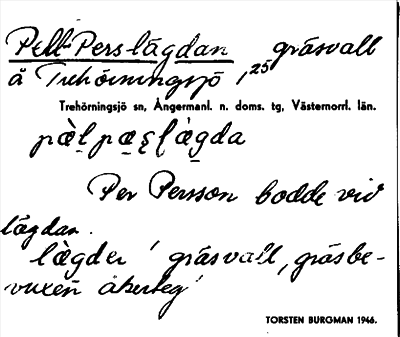 Pell-Perslägdan, gräsvall
å Trehörningsjö, 25
Trehörningsjö sn, Ångermanl. n. doms. tg, Västernorrl. län.
Per Persson bodde vid
lägdan.
lägder 'gräsvall, gräsbe-
vuxen åkerteg'
TORSTEN BURGMAN 1946.